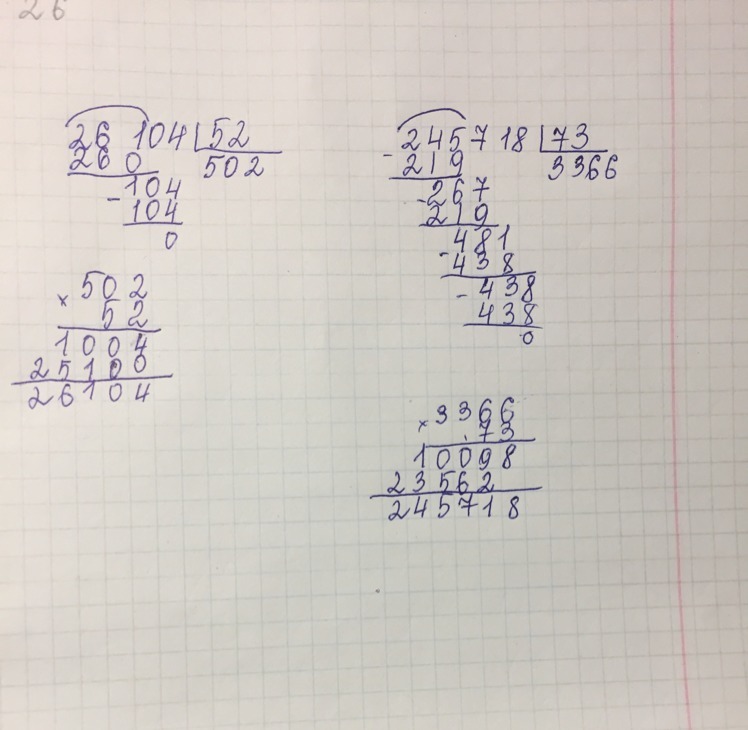 26
26 104 52
260 502
- 104
104
0
× 502
52
1004
25100
26104
- 245718 73
219 3366
- 267
219
- 481
438
- 438
438
0
× 3366
73
10098
23562
245718